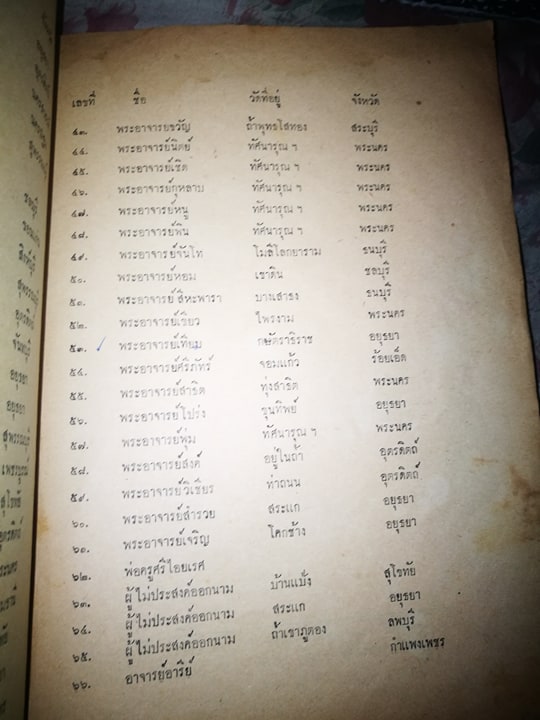 เลขที่ ชื่อ วัดที่อยู่ จังหวัด
๔๓. พระอาจารย์ขวัญ ถ้ำพุทธไสทอง สระบุรี
๔๔. พระอาจารย์นิตย์ ทัศนารุณ ฯ พระนคร
๔๕. พระอาจารย์เชิด ทัศนารุณ ฯ พระนคร
๔๖. พระอาจารย์กุหลาบ ทัศนารุณ ฯ พระนคร
๔๗. พระอาจารย์หนู ทัศนารุณ ฯ พระนคร
๔๘. พระอาจารย์พิน ทัศนารุณ ฯ พระนคร
๔๙. พระอาจารย์จันโท โมลีโลกยาราม ธนบุรี
๕๐. พระอาจารย์หอม เขาดิน ชลบุรี
๕๑. พระอาจารย์ สีหะพารา บางเสาธง ธนบุรี
๕๒. พระอาจารย์เขียว ไพรงาม พระนคร
๕๓. พระอาจารย์เทียม กษัตราธิราช อยุธยา
๕๔. พระอาจารย์ศรีภัทร์ จอมแก้ว ร้อยเอ็ด
๕๕. พระอาจารย์สาธิต ทุ่งสาธิต พระนคร
๕๖. พระอาจารย์โปร่ง ขุนทิพย์ อยุธยา
๕๗. พระอาจารย์พุ่ม ทัศนารุณ ฯ พระนคร
๕๘. พระอาจารย์สงค์ อยู่ในถ้ำ อุตรดิตถ์
๕๙. พระอาจารย์วิเชียร ท่าถนน อุตรดิตถ์
๖๐. พระอาจารย์สำรวย สระแก อยุธยา
๖๑. พระอาจารย์เจริญ โคกช้าง อยุธยา
๖๒. พ่อครูศรีไอยเรศ
๖๓. ผู้ไม่ประสงค์ออกนาม บ้านแบ้ง สุโขทัย
๖๔. ผู้ไม่ประสงค์ออกนาม สระแก อยุธยา
๖๕. ผู้ไม่ประสงค์ออกนาม ถ้ำเขาภูตอง ลพบุรี
๖๖. อาจารย์อารีย์ กำแพงเพชร